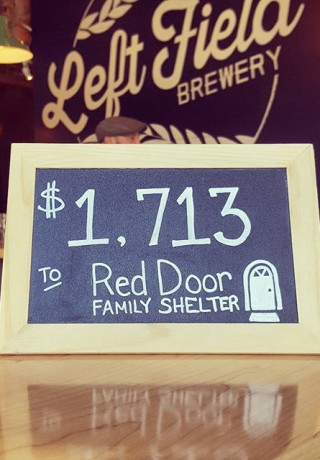 Left Field
BREWERY
$1,713
TO Red Door
FAMILY SHELTER